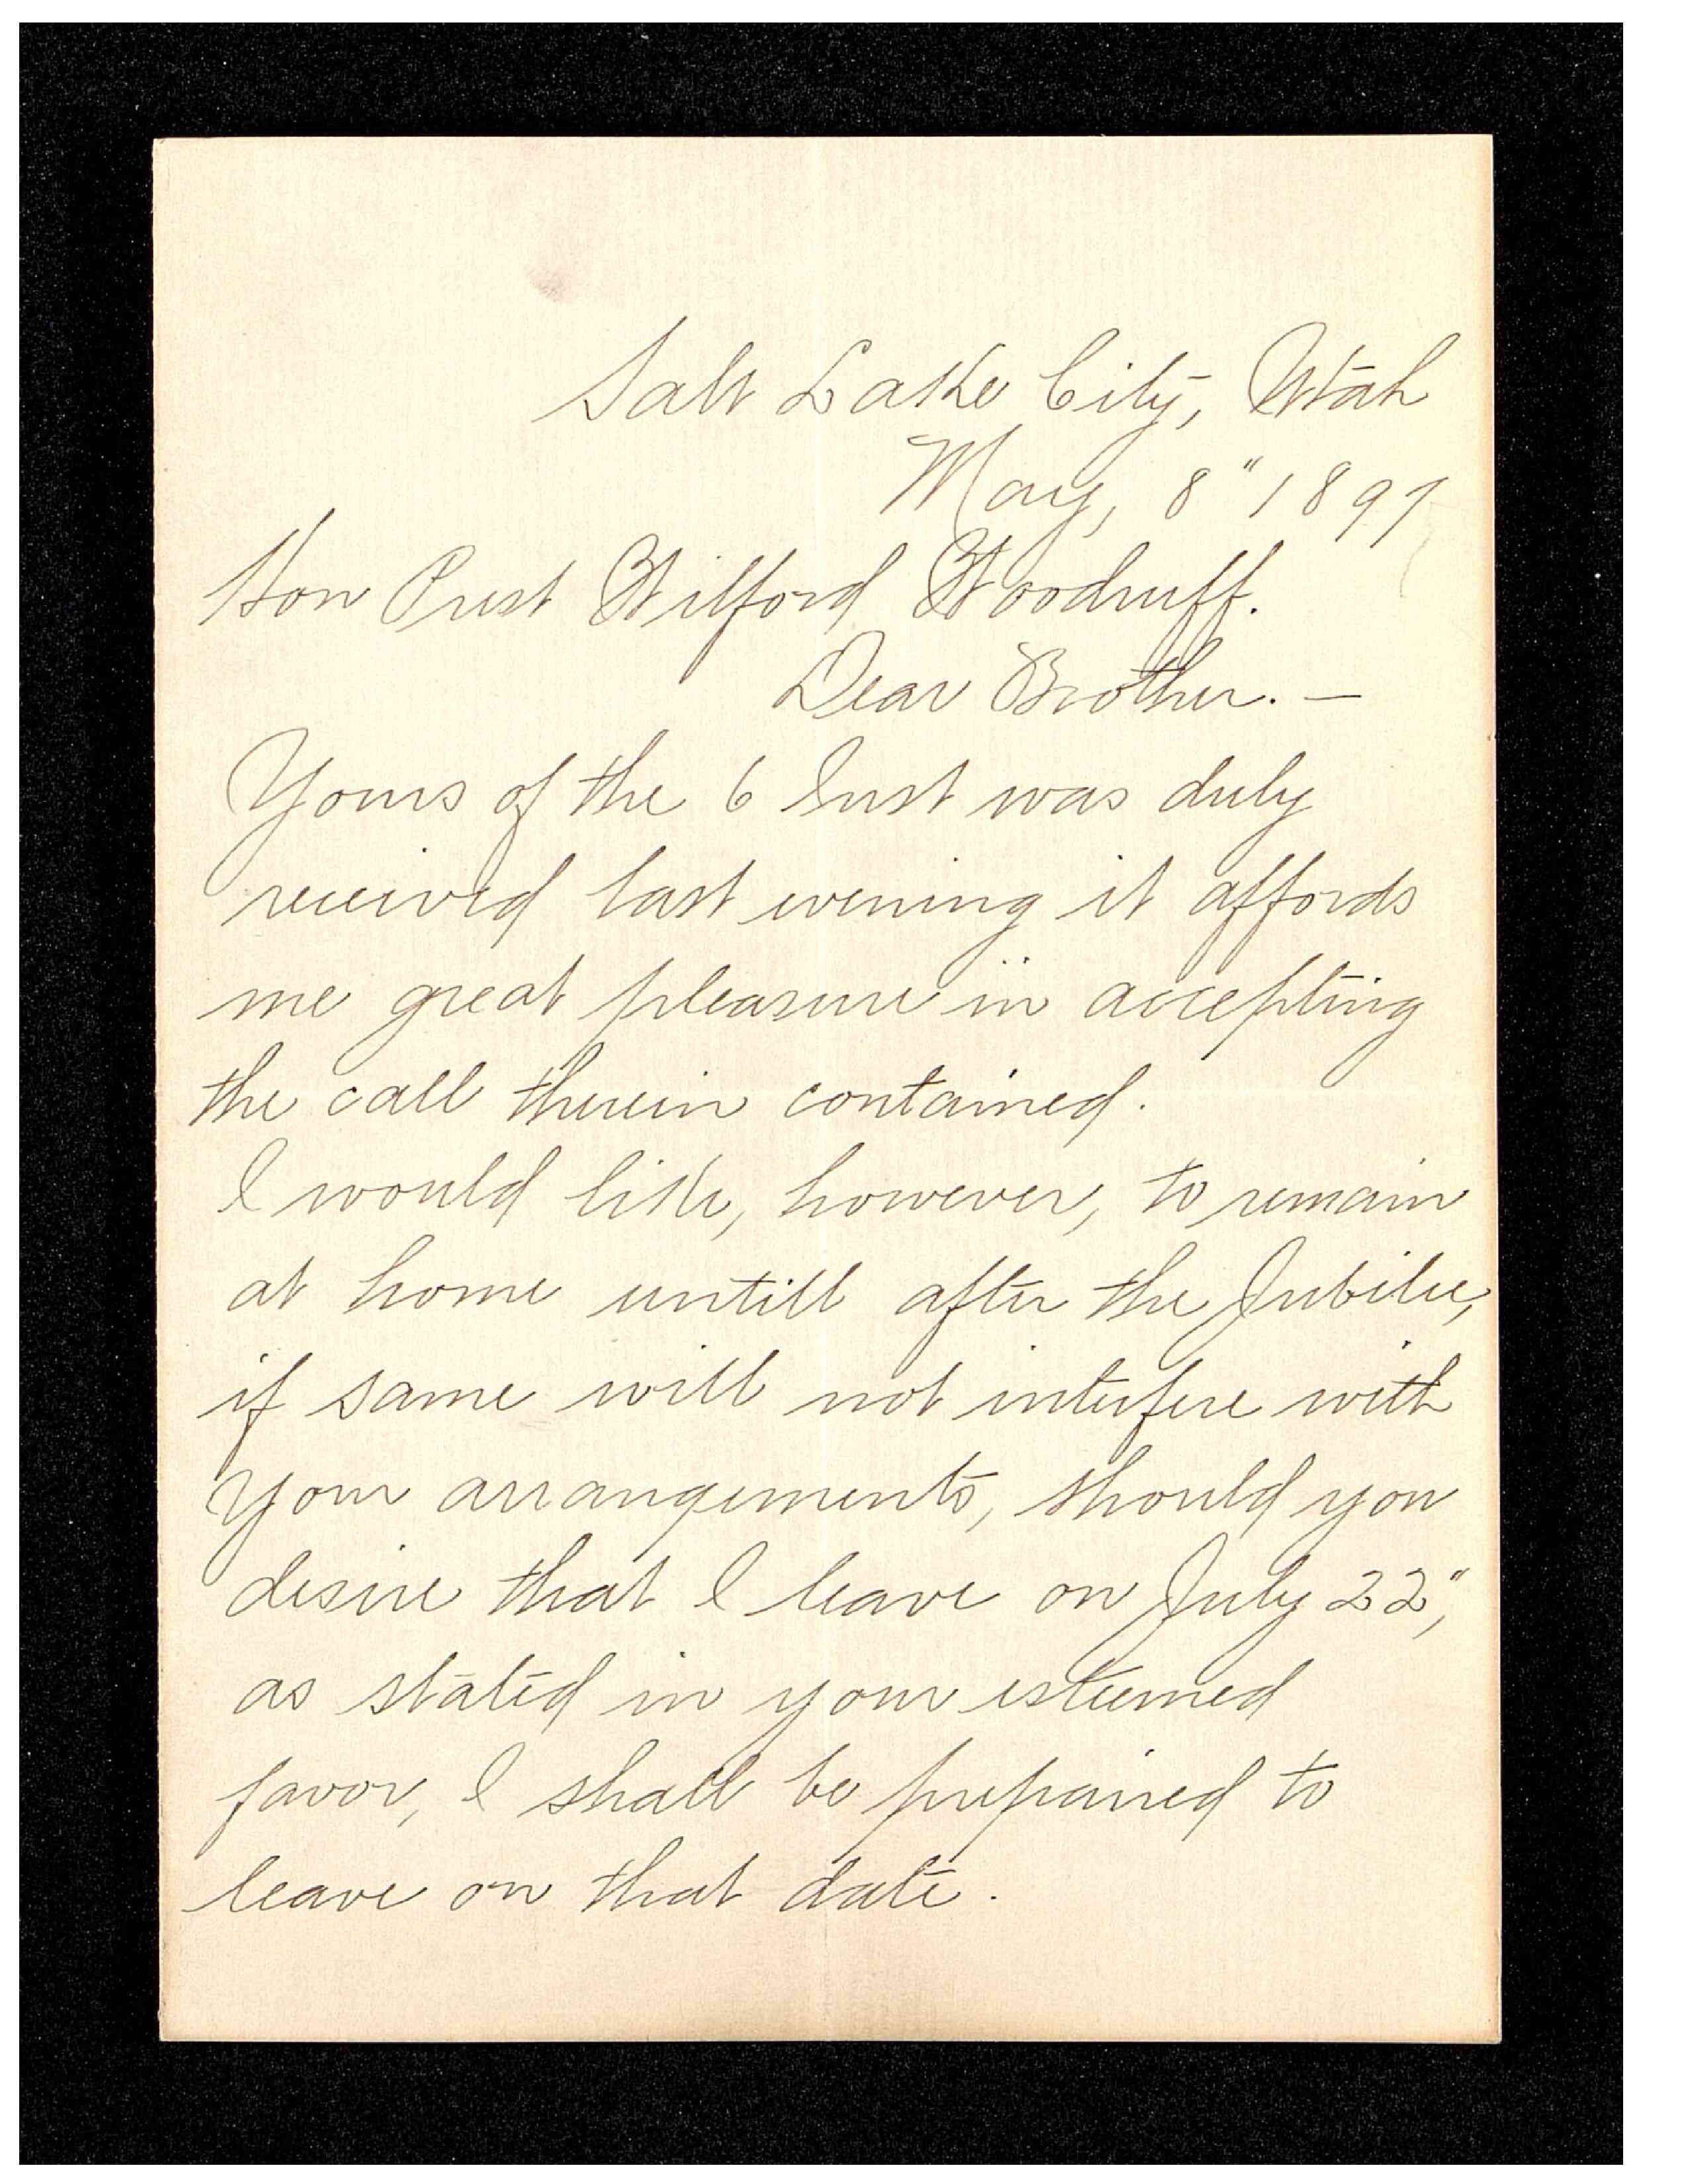 Salt Lake City, Utah
May, 8" 1897
Hon Prest Wilford Woodruff.
Dear Brother. —
Yours of the 6 Inst was duly
received last evening it affords
me great pleasure in accepting
the call therein contained.
I would like, however, to remain
at home untill after the Jubilee,
if same will not interfere with
your arrangements, should you
desire that I leave on July 22",
as stated in your esteemed
favor, I shall be prepaired to
leave on that date.